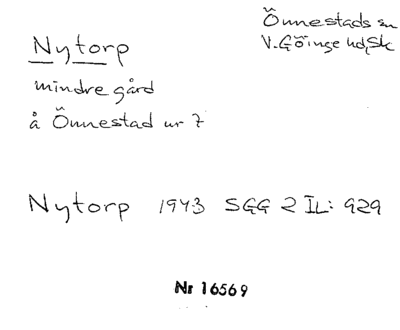 Önnestads sn
V. Göinge hd, Sk
Nytorp
mindre gård
å Önnestad nr 7
Nytorp 1943 SGG 2 IL: 929
Nr 16569